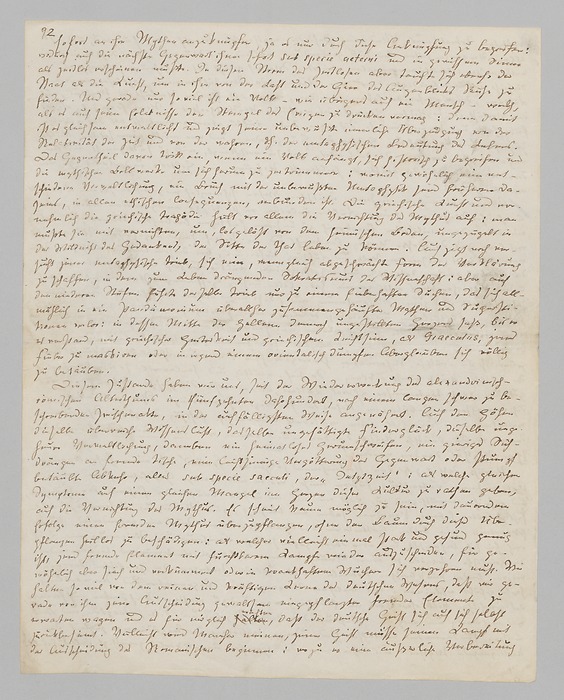 92
sofort an ihre Mythen anzuknüpfen, ja es nur durch diese Anknüpfung zu begreifen:
wodurch auch die nächste Gegenwart ihnen sofort sub specie aeterni und in gewissem Sinne
als zeitlos erscheinen mußte. In diesen Strom des Zeitlosen aber tauchte sich ebenso der
Staat als die Kunst, um in ihm vor der Last und der Gier des Augenblicks Ruhe zu
finden. Und gerade nur so viel ist ein Volk – wie übrigens auch ein Mensch – werth,
als es auf seine Erlebnisse den Stempel des Ewigen zu drücken vermag: denn damit
ist es gleichsam entweltlicht und zeigt seine unbewußte innerliche Überzeugung von der
Relativität der Zeit und von der wahren, d. h. der metaphysischen Bedeutung des Lebens.
Das Gegentheil davon tritt ein, wenn ein Volk anfängt, sich historisch zu begreifen und
die mythischen Bollwerke um sich herum zu zertrümmern: womit gewöhnlich eine ent-
schiedene Verweltlichung, ein Bruch mit der unbewußten Metaphysik seines früheren Da-
seins, in allen ethischen Consequenzen, verbunden ist. Die griechische Kunst und vor-
nehmlich die griechische Tragödie hielt vor allem die Vernichtung des Mythus auf: man
mußte sie mit vernichten, um, losgelöst von dem heimischen Boden, ungezügelt in
der Wildniß des Gedankens, der Sitte der That leben zu können. Auch jetzt noch ver-
sucht jener metaphysische Trieb, sich eine, wenngleich abgeschwächte Form der Verklärung
zu schaffen, in dem zum Leben drängenden Sokratismus der Wissenschaft: aber auf
den niederen Stufen führte derselbe Trieb nur zu einem fieberhaften Suchen, das sich all-
mählich in ein Pandämonium überallher zusammengehäufter Mythen und Supersti-
tionen verlor: in dessen Mitte der Hellene dennoch ungestillten Herzens saß, bis er
es verstand, mit griechischer Heiterkeit und griechischem Leichtsinn, als Graeculus, jenes
Fieber zu maskiren oder in irgend einem orientalisch dumpfen Aberglauben sich völlig
zu betäuben.
Diesem Zustande haben wir uns, seit der Wiedererweckung des alexandrinisch-
römischen Alterthums im fünfzehnten Jahrhundert, nach einem langen schwer zu be-
schreibenden Zwischenacte, in der auffälligsten Weise angenähert. Auf den Höhen
dieselbe überreiche Wissenslust, dasselbe ungesättigte Finderglück, dieselbe unge-
heure Verweltlichung, daneben ein heimatloses Herumschweifen, ein gieriges Sich-
drängen an fremde Tische, eine leichtsinnige Vergötterung der Gegenwart oder stumpf
betäubte Abkehr, alles sub specie saeculi, der „Jetztzeit“: als welche gleichen
Symptome auf einen gleichen Mangel im Herzen dieser Cultur zu rathen geben,
auf die Vernichtung des Mythus. Es scheint kaum möglich zu sein, mit dauerndem
Erfolge einen fremden Mythus überzupflanzen, ohne den Baum durch dieses Über-
pflanzen heillos zu beschädigen: als welcher vielleicht ein mal stark und gesund genug
ist, jenes fremde Element mit furchtbarem Kampfe wieder auszuscheiden, für ge-
wöhnlich aber siech und verkümmert oder in krankhaftem Wuchern sich verzehren muß. Wir
halten so viel von dem reinen und kräftigen Kerne des deutschen Wesens, daß wir ge-
rade von ihm jene Ausscheidung gewaltsam eingepflanzter fremder Elemente zu
erwarten wagen und es für möglich halten, daß der deutsche Geist sich auf sich selbst
zurückbesinnt. Vielleicht wird Mancher meinen, jener Geist müsse seinen Kampf mit
der Ausscheidung des Romanischen beginnen: wozu er eine äußerliche Vorbereitung